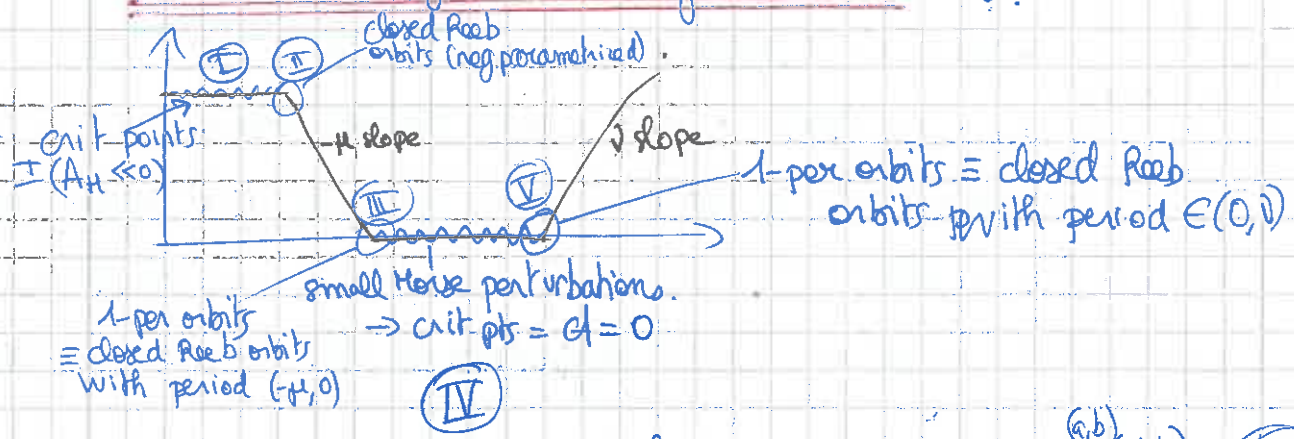 closed Reeb
orbits (neg. parametrized).
I
II
crit points
I (A_H <<0)
-μ slope
ν slope
III
V
1-per orbits ≡ closed Reeb
orbits with period ∈(0,ν)
small Morse perturbations.
→ crit pts = A = 0
1-per orbits
≡ closed Reeb orbits
with period (-μ,0)
IV
(a,b)